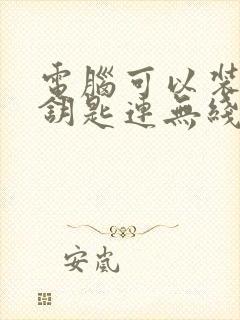 電腦可以裝
鑰匙連無綫
安嵐